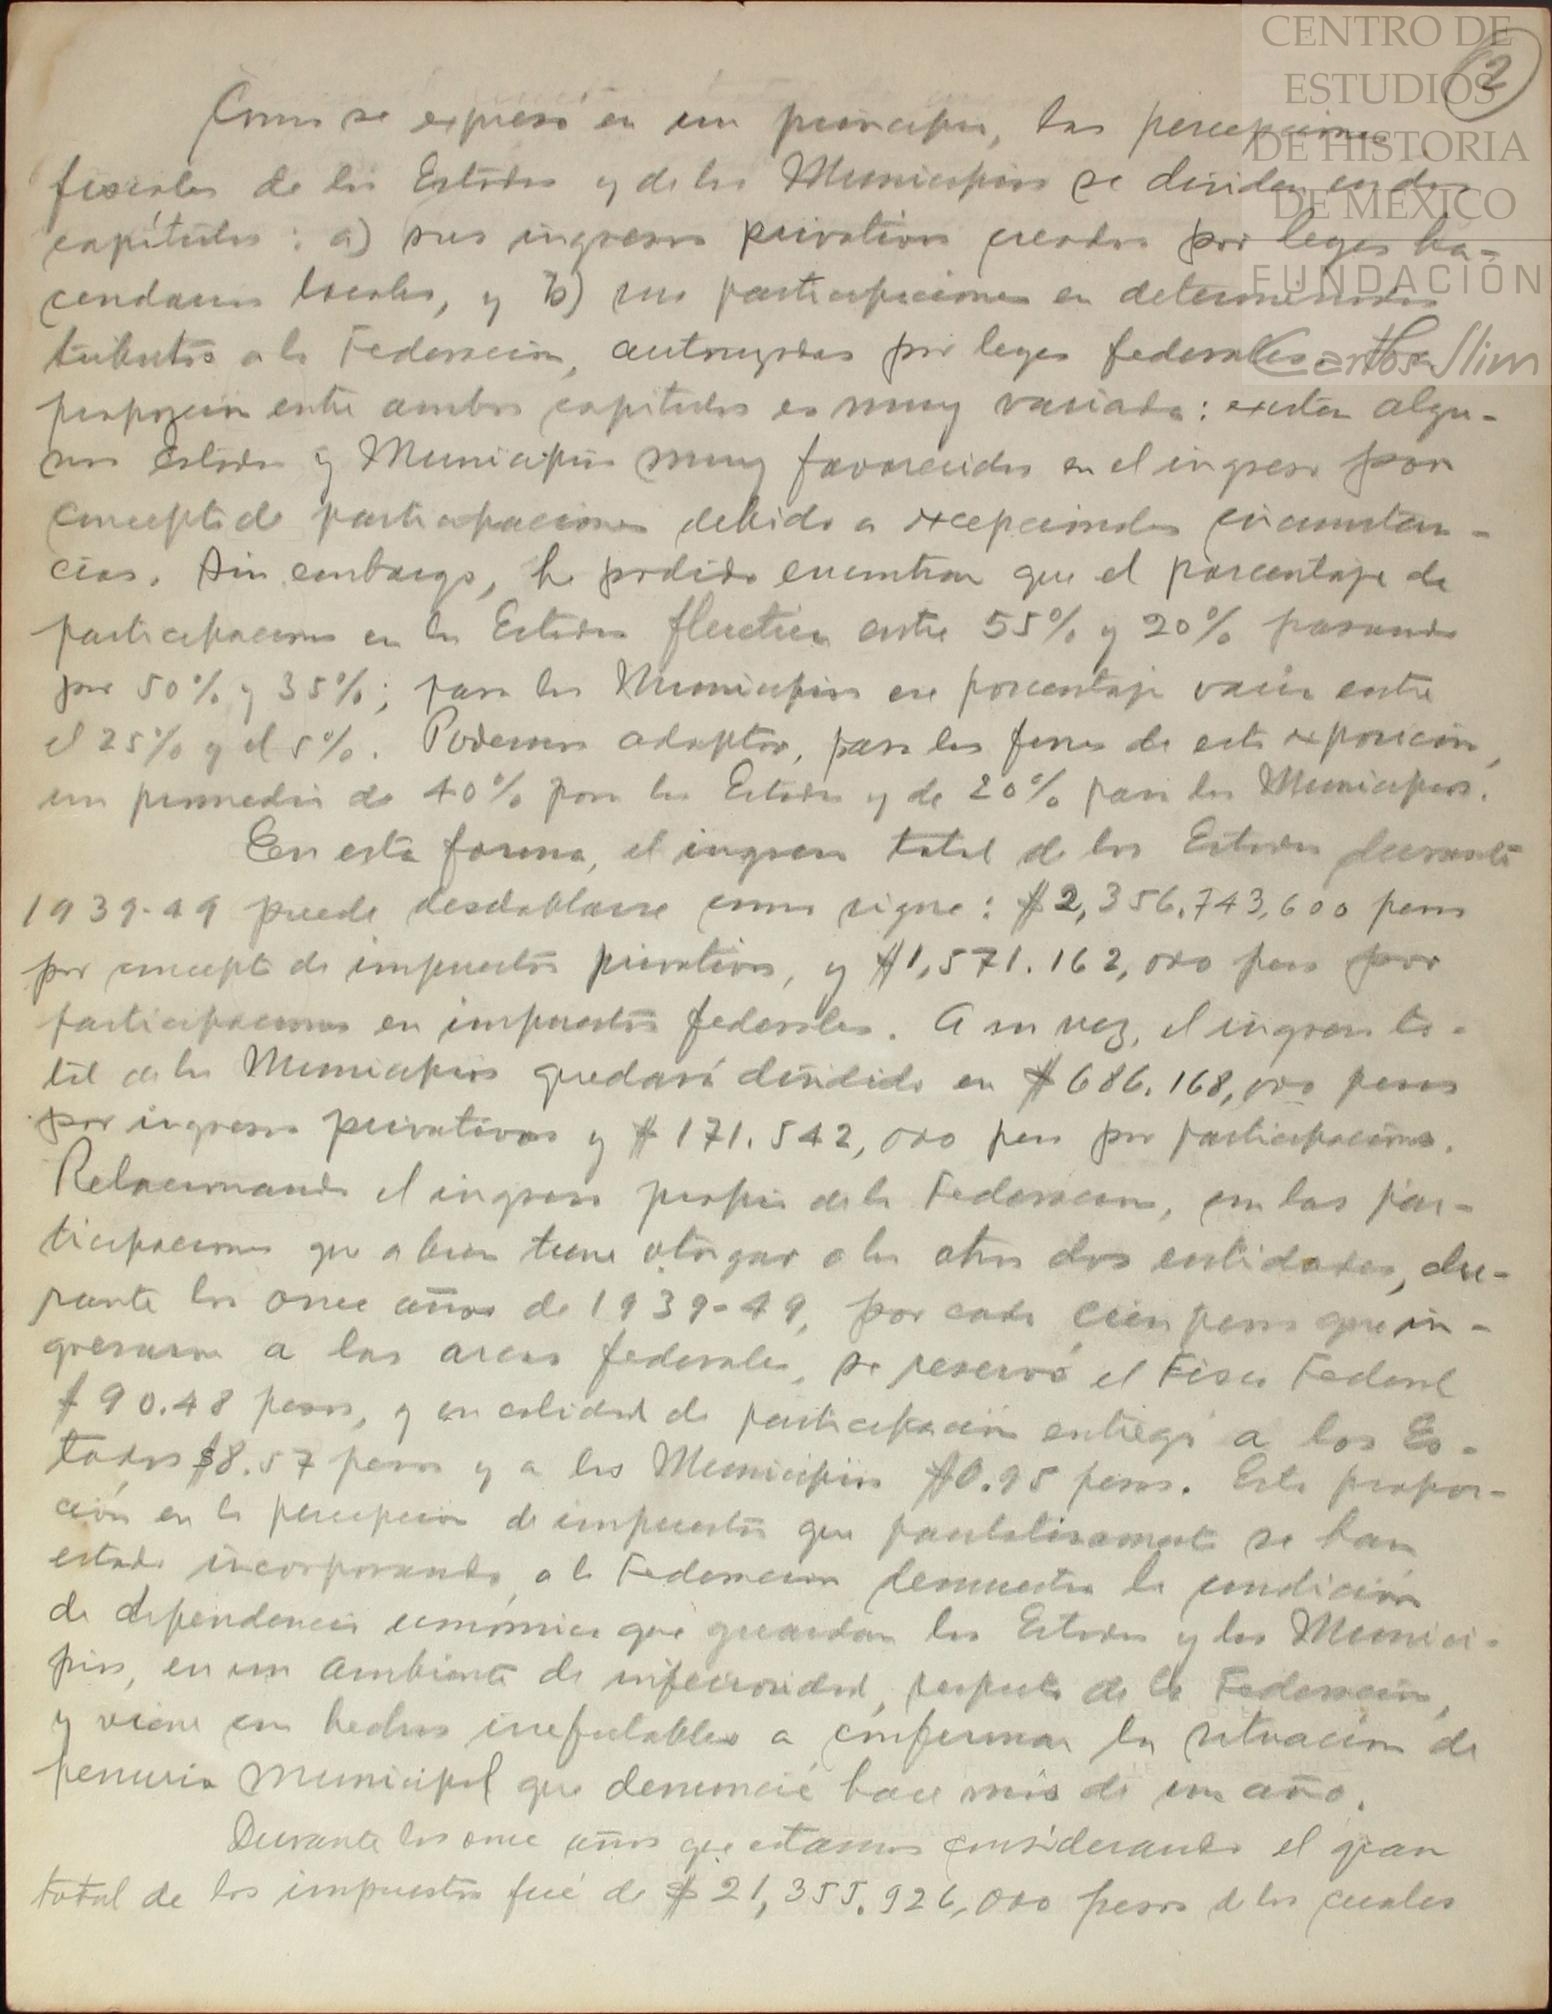 CENTRO DE
ESTUDIOS
DE HISTORIA
DE MÉXICO
FUNDACIÓN
Carlos Slim
2
Como se expresó en un principio, las percepciones
fiscales de los Estados y de los Municipios se dividen en dos
capítulos: a) sus ingresos privativos creados por leyes ha-
cendarias locales, y b) sus participaciones en determinados
tributos a la Federación, autorizadas por leyes federales. La
proporción entre ambos capítulos es muy variada: existen algu-
nos Estados y Municipios muy favorecidos en el ingreso por
concepto de participaciones debido a excepcionales circunstan-
cias. Sin embargo, he podido encontrar que el porcentaje de
participaciones en los Estados fluctúa entre 55% y 20% pasando
por 50% y 35%; para los Municipios ese porcentaje varía entre
el 25% y el 5%. Podemos adoptar, para los fines de esta exposición,
un promedio de 40% para los Estados y de 20% para los Municipios.
En esta forma, el ingreso total de los Estados durante
1939-49 puede desdoblarse como sigue: $2,356.743,600 pesos
por concepto de impuestos privativos, y $1,571.162,000 pesos por
participaciones en impuestos federales. A su vez, el ingreso to-
tal de los Municipios quedará dividido en $686.168,000 pesos
por ingresos privativos y $171.542,000 pesos por participaciones.
Relacionando el ingreso propio de la Federación, con las par-
ticipaciones que a bien tiene otorgar a las otras dos entidades, du-
rante los once años de 1939-49, por cada cien pesos que in-
gresaron a las arcas federales, se reservó el Fisco Federal
$90.48 pesos, y en calidad de participación entregó a los Es-
tados $8.57 pesos y a los Municipios $0.95 pesos. Esta propor-
ción en la percepción de impuestos que paulatinamente se han
estado incorporando a la Federación demuestra la condición
de dependencia económica que guardan los Estados y los Munici-
pios, en un ambiente de inferioridad, respecto de la Federación,
y viene con hechos irrefutables a confirmar la situación de
penuria Municipal que denuncié hace más de un año.
Durante los once años que estamos considerando el gran
total de los impuestos fué de $21,355.926,000 pesos de los cuales